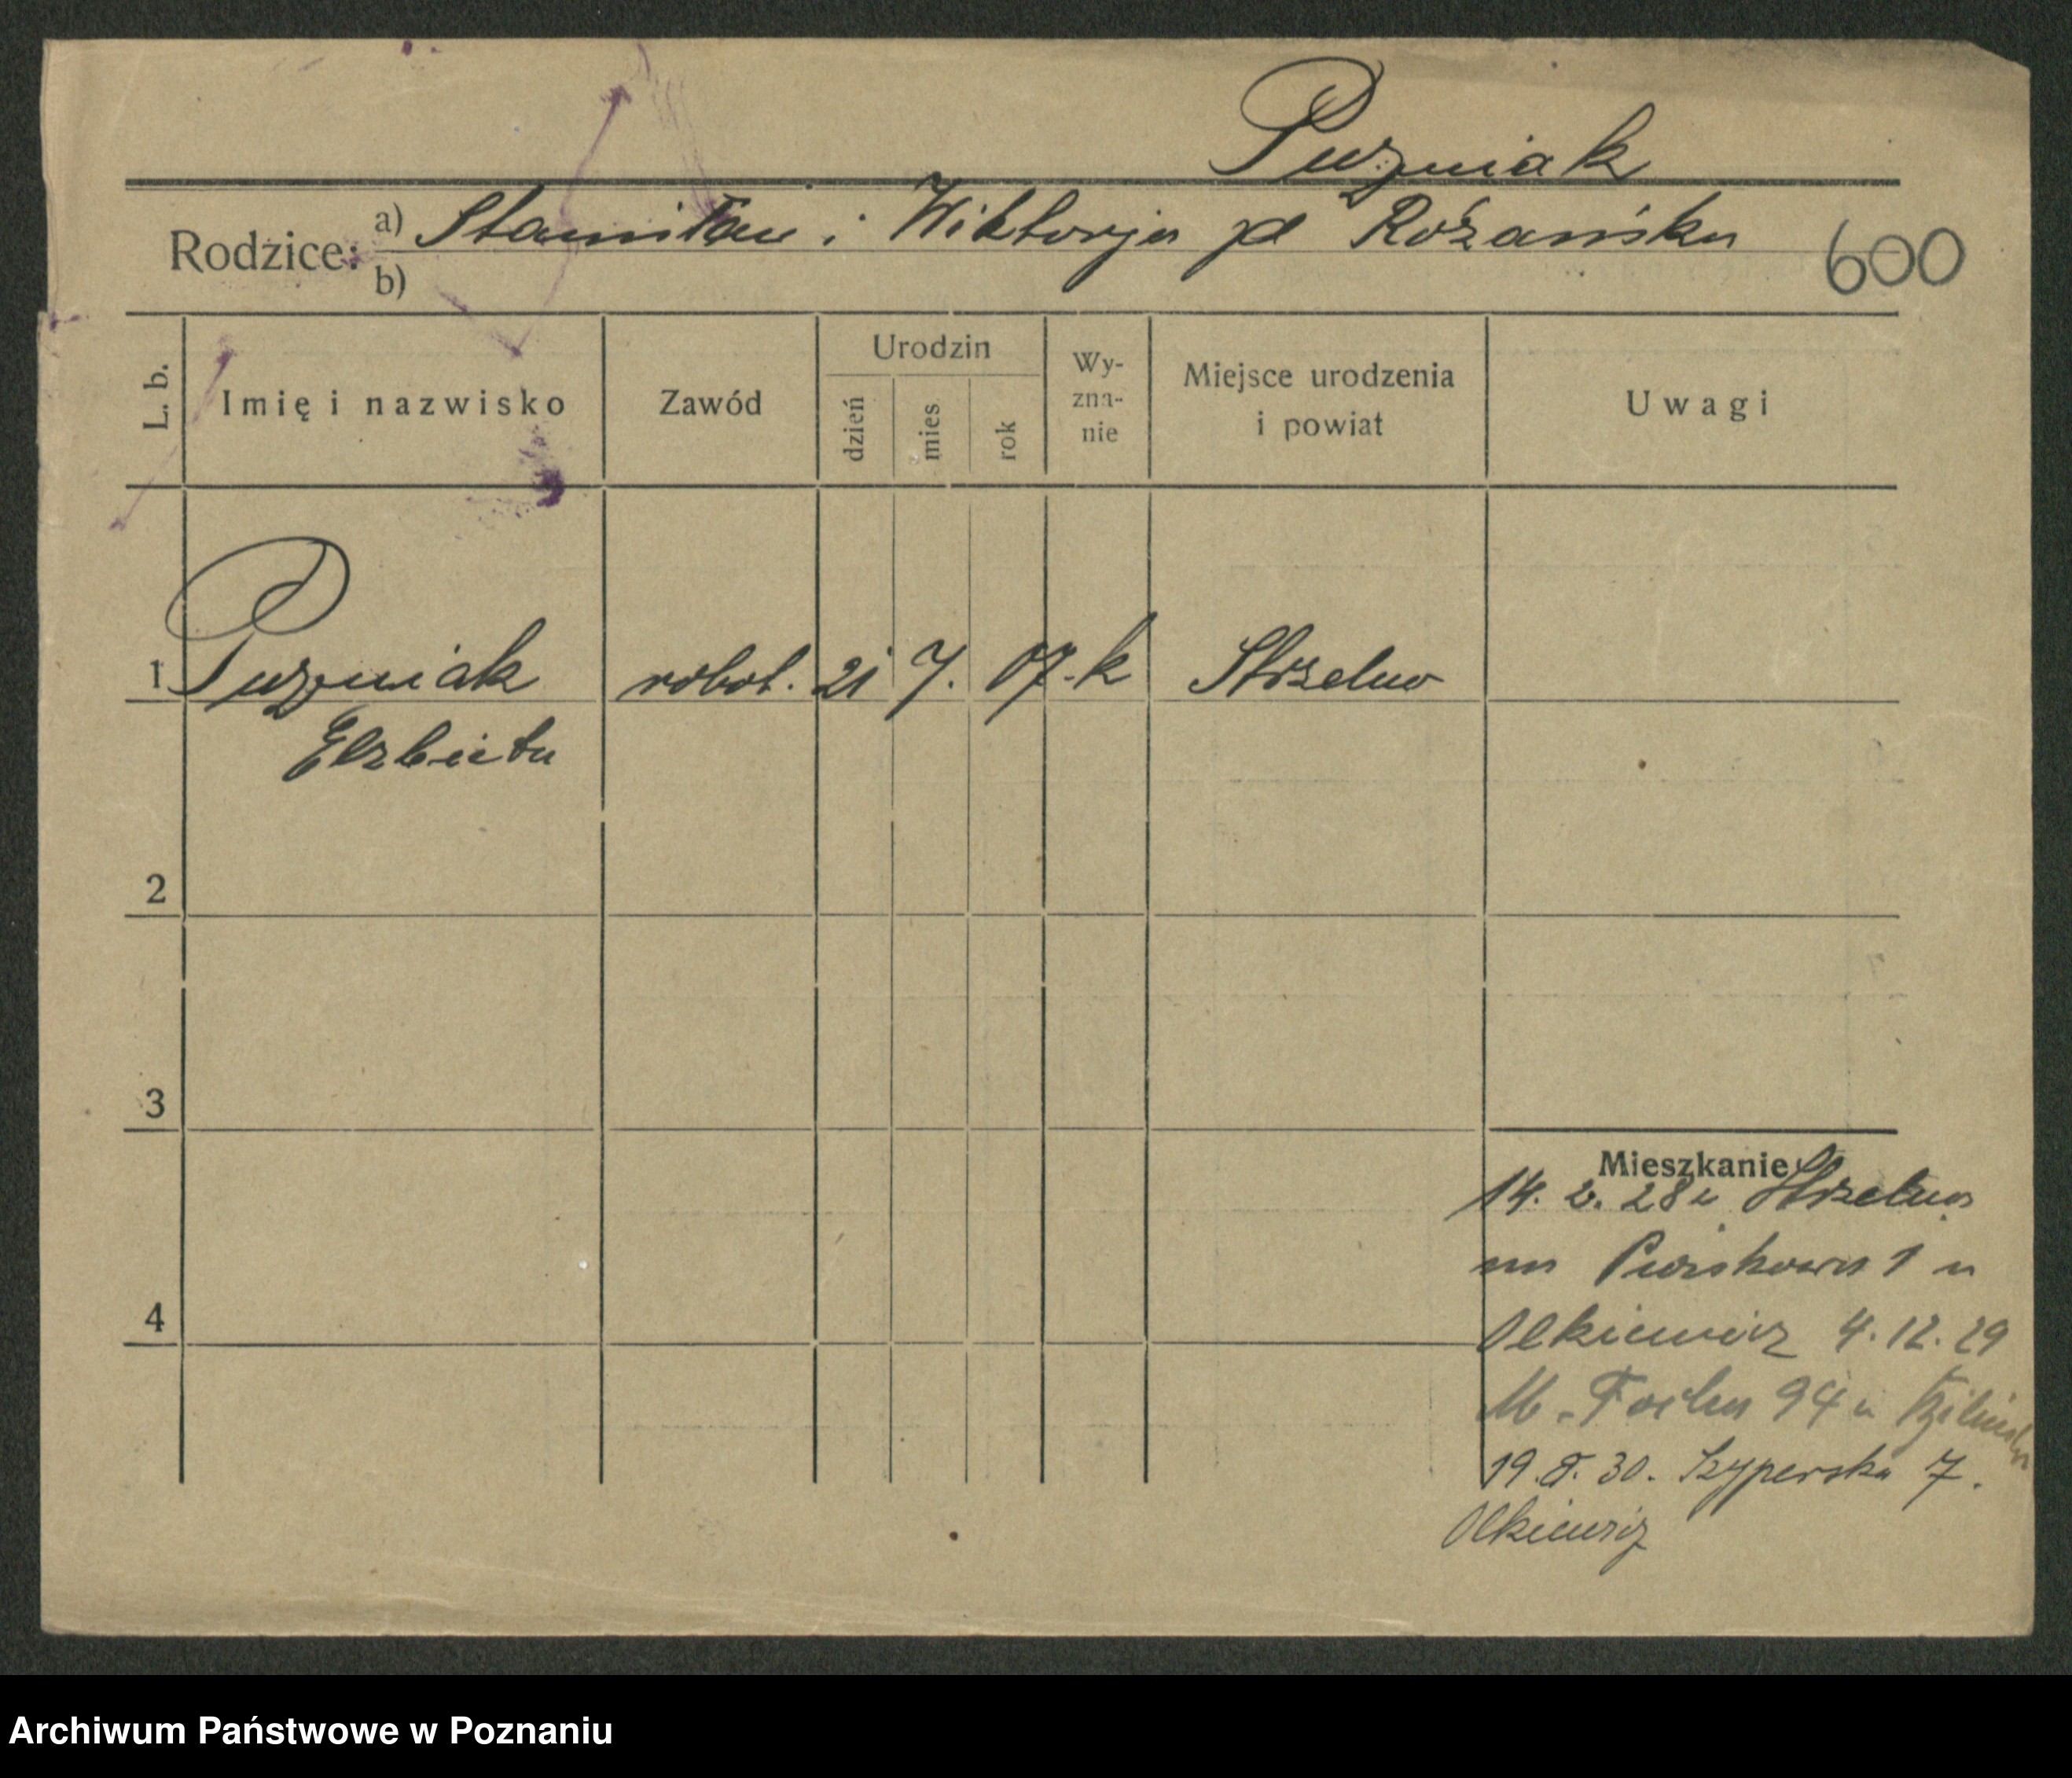 Puzyniak
Rodzice: a) Stanisław i Wiktorja zd Rożańska
b)
600
L. b. Imię i nazwisko Zawód Urodzin dzień mies rok Wy-zna-nie Miejsce urodzenia i powiat Uwagi
1 Puzyniak robot. 21 7. 07. k Strzelno
Elzbieta
2
3
Mieszkanie
14. 2. 28 z Strzelna
4
na Piaskowa 1 u
Olkiewicz 4. 12. 29
M. Focha 94 u
19. 8. 30. Szyperska 7.
Olkiewicz
Archiwum Państwowe w Poznaniu